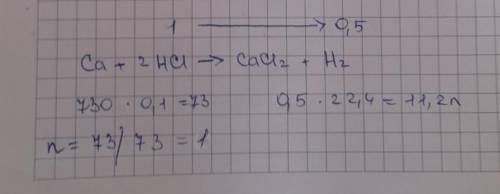 1 ⟶ 0,5
Ca + 2HCl → CaCl2 + H2
730 · 0,1 = 73 0,5 · 22,4 = 11,2л
n = 73/73 = 1